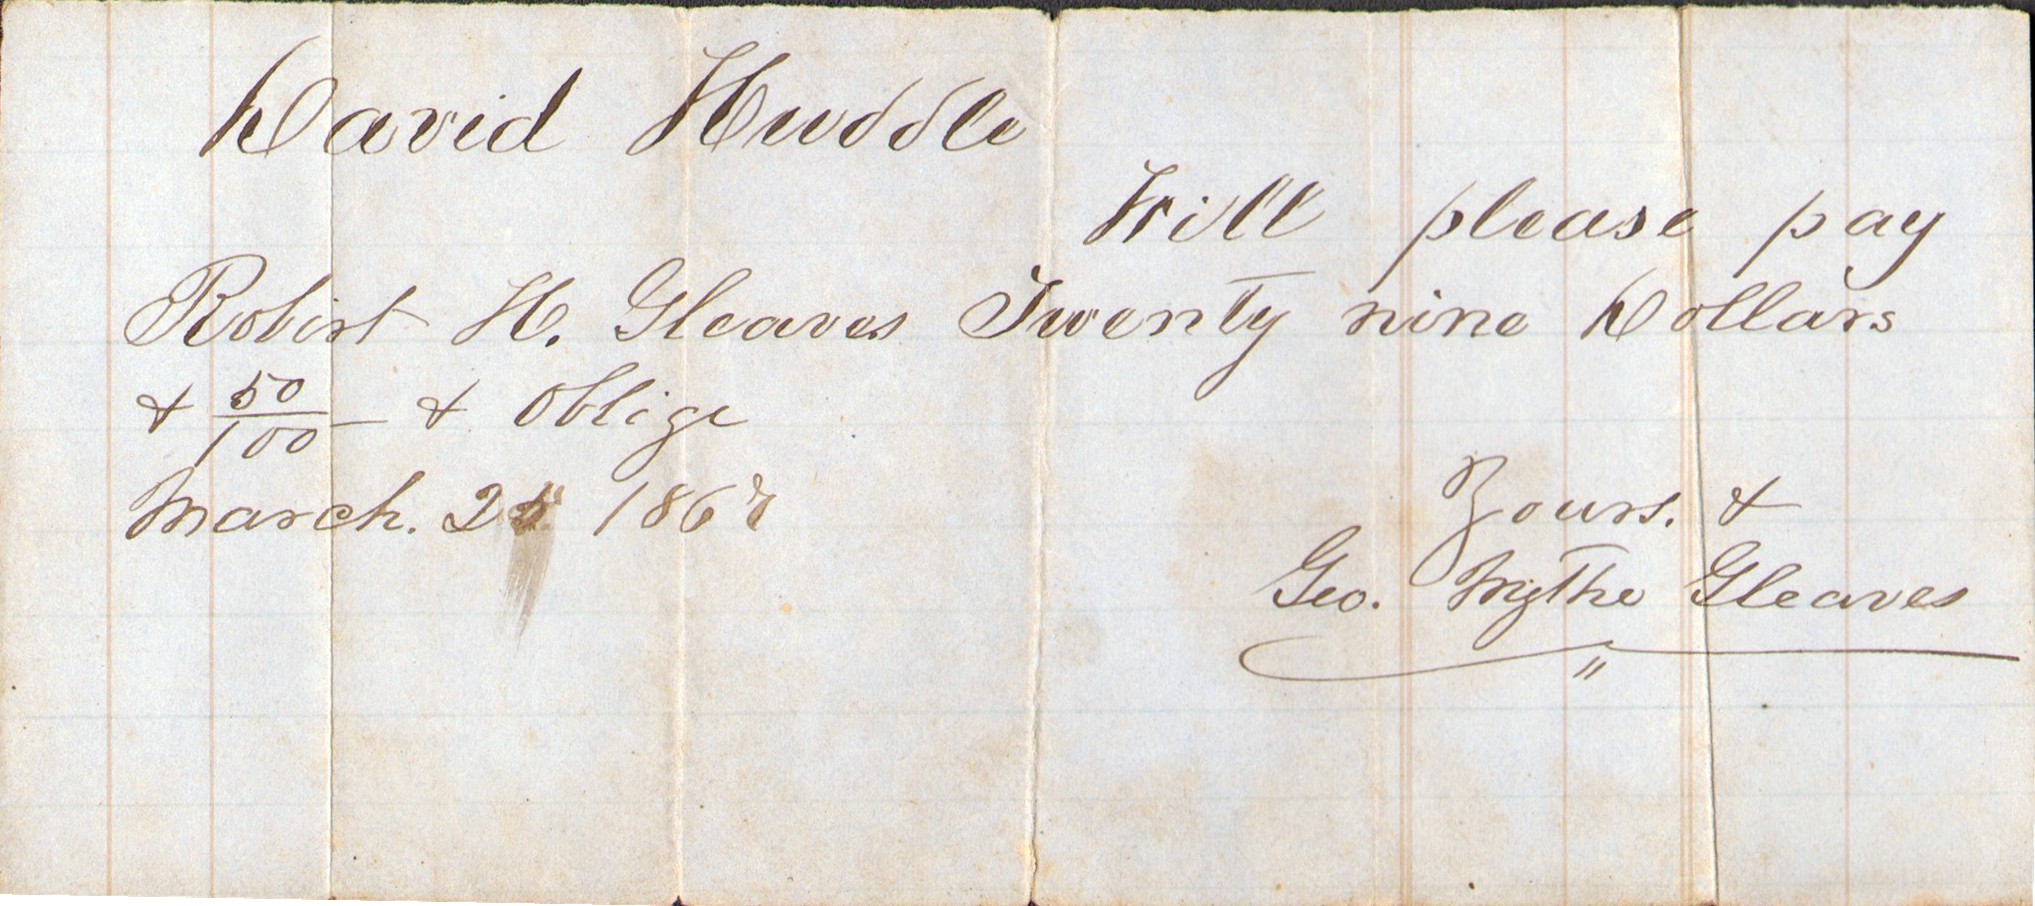 David Huddle
Will please pay
Robert H. Gleaves Twenty nine Dollars
& 50/100 & Oblige
March. 186
Yours. &
Geo. Wythe Gleaves
"